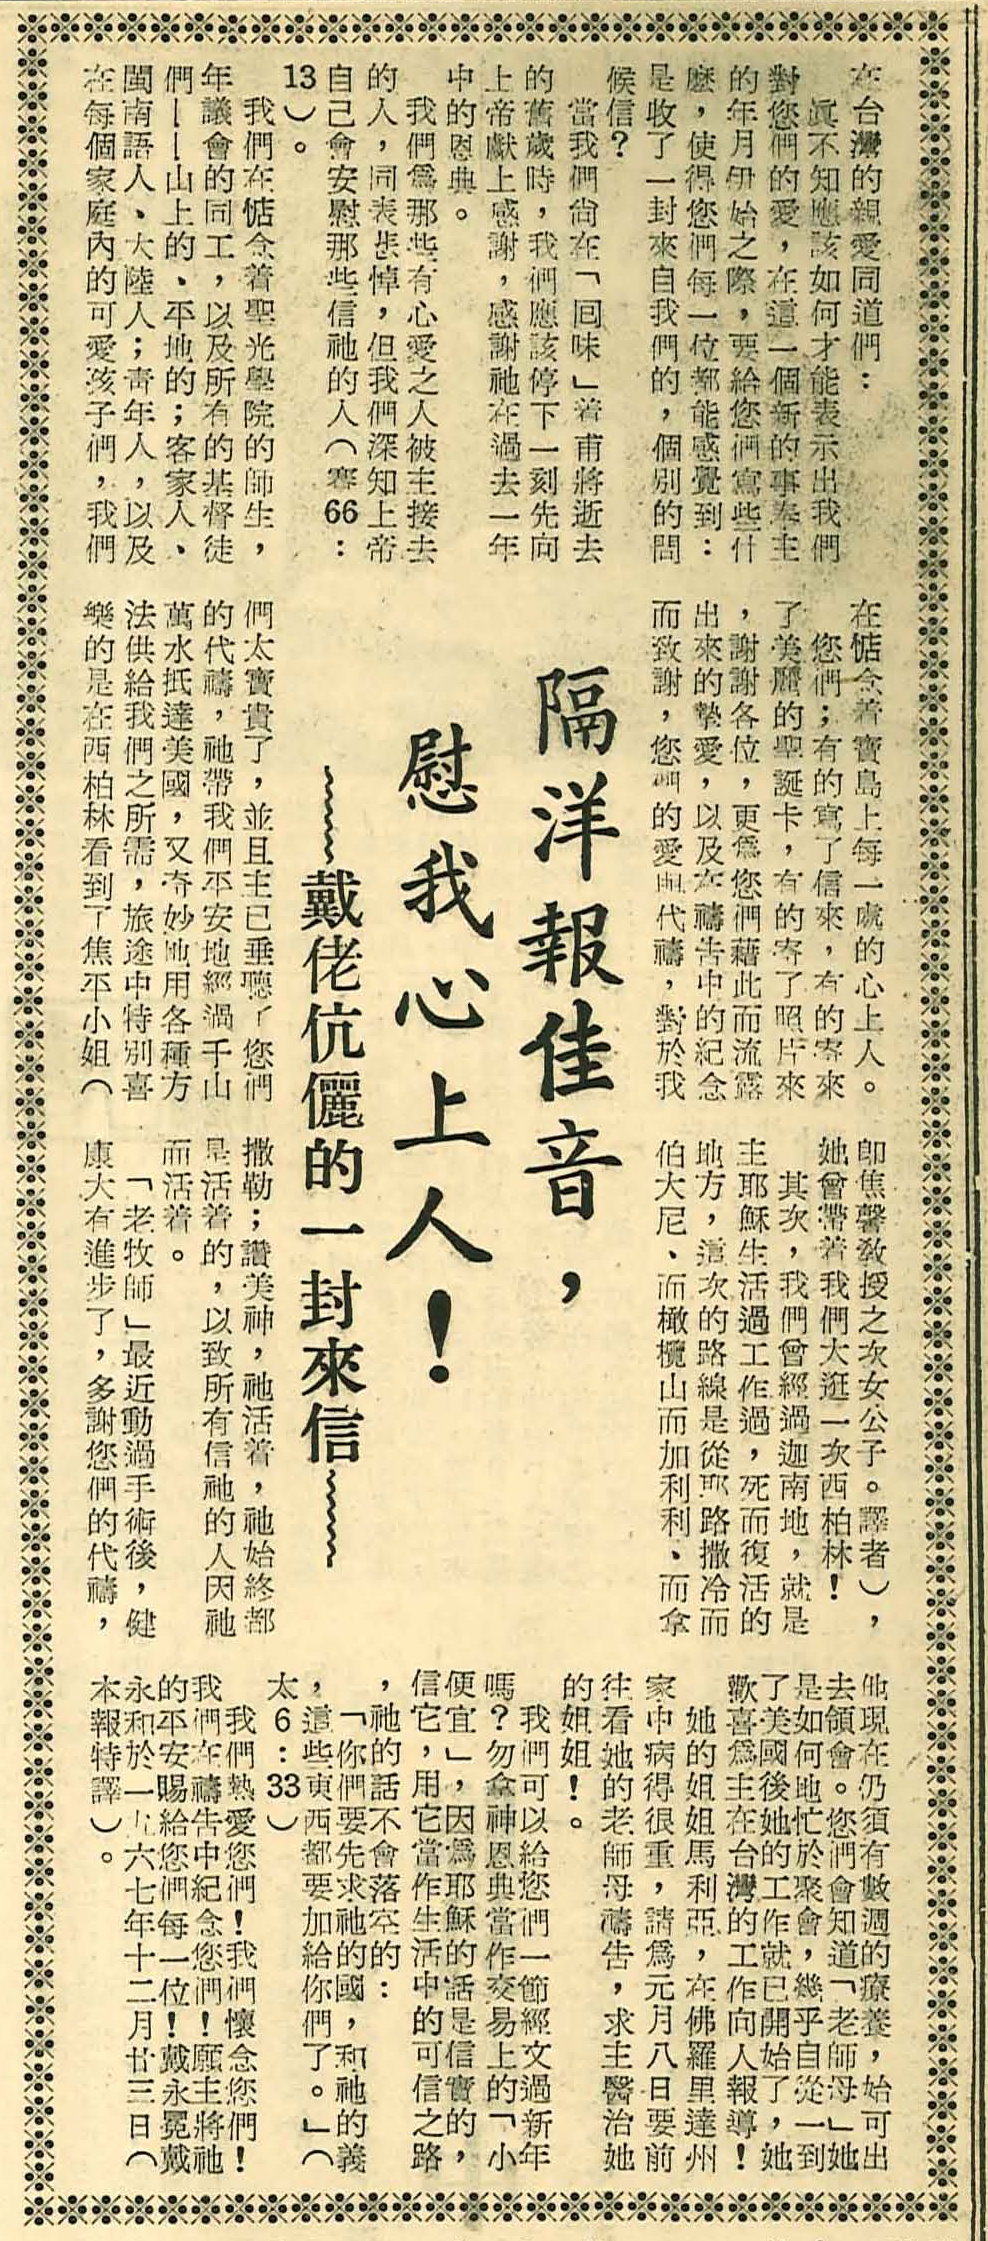 隔洋報佳音，
慰我心上人！
戴佬伉儷的一封來信
在台灣的親愛同道們：
眞不知應該如何才能表示出我們
對您們的愛，在這一個新的事奉主
的年月開始之際，要給您們寫些什
麽，使得您們每一位都能感覺到：
是收了一封來自我們的，個別的問
候信？
當我們尙在「回味」着甫將逝去
的舊歲時，我們應該停下一刻先向
上帝獻上感謝，感謝祂在過去一年
中的恩典。
我們爲那些有心愛之人被主接去
的人，同表悲悼，但我們深知上帝
自己會安慰那些信祂的人（賽66：
13）。
我們在惦念着聖光學院的師生，
年議會的同工，以及所有的基督徒
們——山上的、平地的；客家人、
閩南語人、大陸人；靑年人，以及
在每個家庭內的可愛孩子們，我們
在惦念着寶島上每一處的心上人。
您們；有的寫了信來，有的寄來
了美麗的聖誕卡，有的寄了照片來
，謝謝各位，更爲您們藉此而流露
出來的摯愛，以及在禱告中的紀念
而致謝，您們的愛與代禱，對於我
們太寶貴了，並且主已垂聽了您們
的代禱，祂帶我們平安地經過千山
萬水抵達美國，又奇妙地用各種方
法供給我們之所需，旅途中特別喜
樂的是在西柏林看到了焦平小姐（
卽焦馨敎授之次女公子。譯者），
她曾帶着我們大逛一次西柏林！
其次，我們曾經過迦南地，就是
主耶穌生活過工作過，死而復活的
地方，這次的路線是從耶路撒冷而
伯大尼、而橄欖山而加利利、而拿
撒勒；讚美神，祂活着，祂始終都
是活着的，以致所有信祂的人因祂
而活着。
「老牧師」最近動過手術後，健
康大有進步了，多謝您們的代禱，
他現在仍須有數週的療養，始可出
去領會。您們會知道「老師母」她
是如何地忙於聚會，幾乎自從一到
了美國後她的工作就已開始了，她
歡喜爲主在台灣的工作向人報導！
她的姐姐馬利亞，在佛羅里達州
家中病得很重，請爲元月八日要前
往看她的老師母禱告，求主醫治她
的姐姐！。
我們可以給您們一節經文過新年
嗎？勿拿神恩典當作交易上的「小
便宜」，因爲耶穌的話是信實的，
信它，用它當作生活中的可信之路
，祂的話不會落空的：
「你們要先求祂的國，和祂的義
，這些東西都要加給你們了。」（
太6：33）
我們熱愛您們！我們懷念您們！
我們在禱告中紀念您們！願主將祂
的平安賜給您們每一位！戴永冕戴
永和於一九六七年十二月廿三日（
本報特譯）。